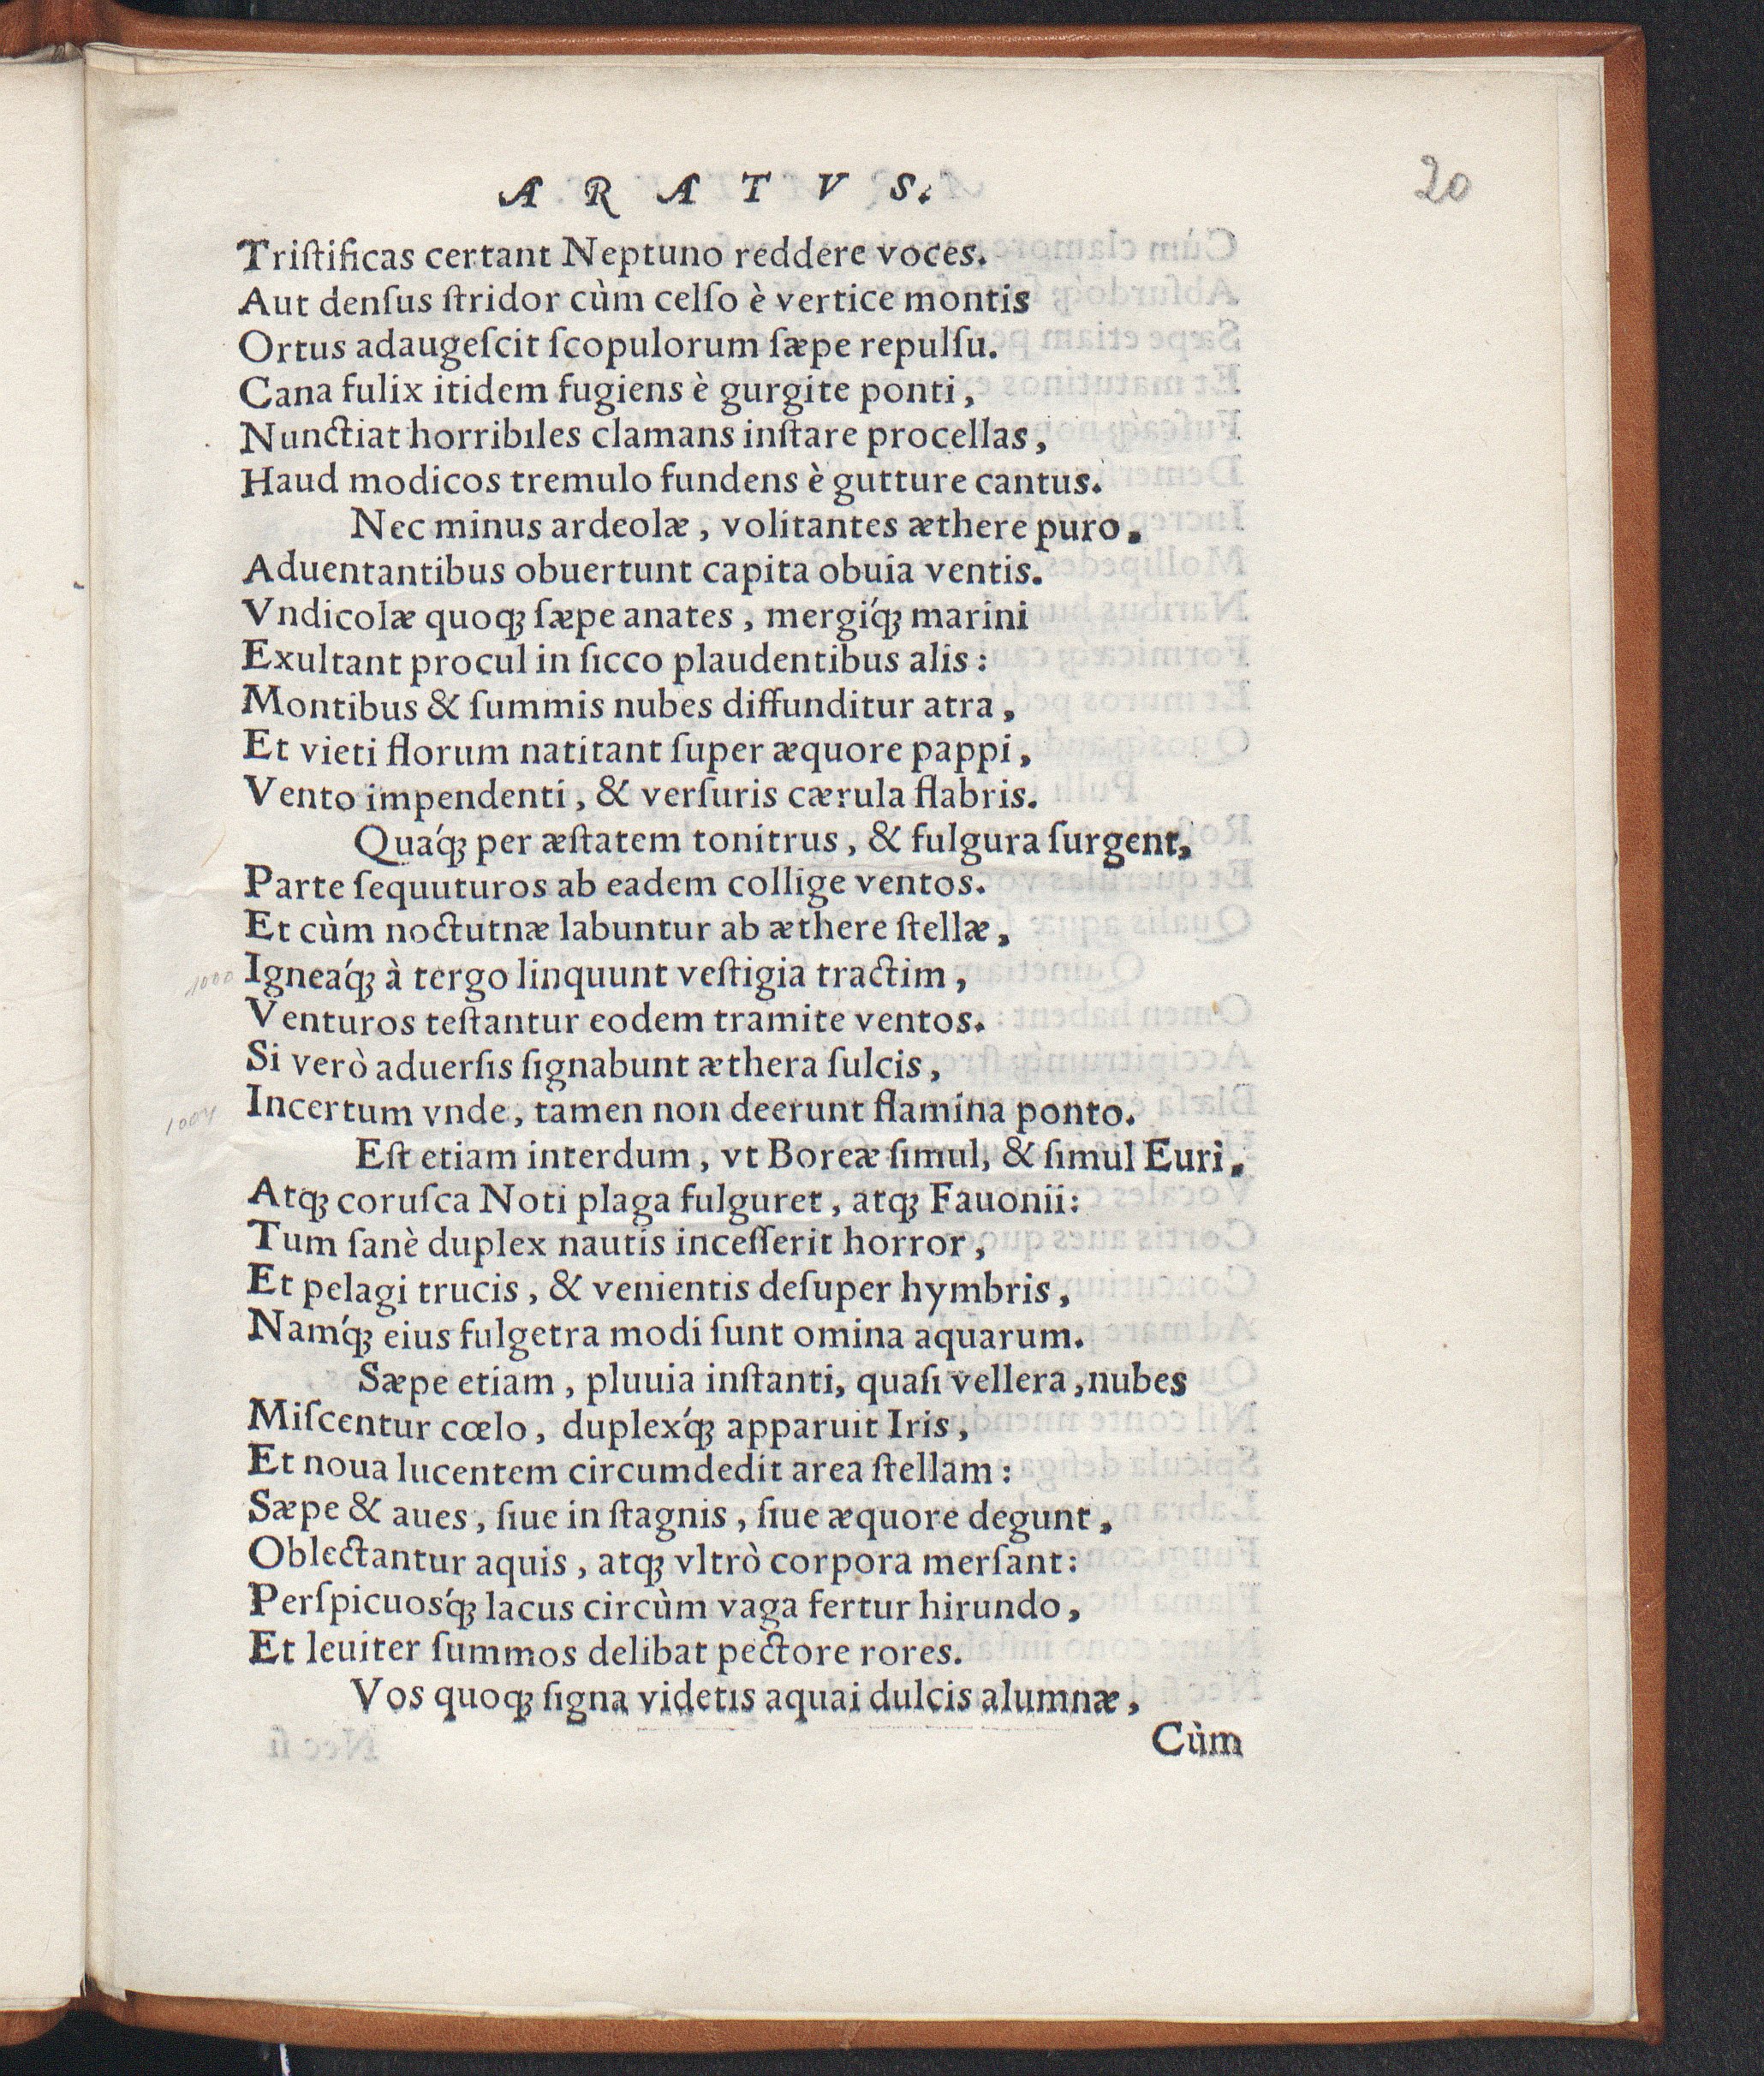 A R A T V S.
20
Triſtificas certant Neptuno reddere voces.
Aut denſus ſtridor cùm celſo è vertice montis
Ortus adaugeſcit ſcopulorum ſæpe repulſu.
Cana fulix itidem fugiens è gurgite ponti,
Nunctiat horribiles clamans inſtare procellas,
Haud modicos tremulo fundens è gutture cantus.
Nec minus ardeolæ, volitantes æthere puro,
Aduentantibus obuertunt capita obuia ventis.
Vndicolæ quoq; ſæpe anates, mergiq́; marini
Exultant procul in ſicco plaudentibus alis:
Montibus & ſummis nubes diffunditur atra,
Et vieti florum natitant ſuper æquore pappi,
Vento impendenti, & verſuris cærula flabris.
Quaq́; per æſtatem tonitrus, & fulgura ſurgent,
Parte ſequuturos ab eadem collige ventos.
Et cùm noctutnæ labuntur ab æthere ſtellæ,
1000 Igneaq́; à tergo linquunt veſtigia tractim,
Venturos teſtantur eodem tramite ventos.
Si verò aduerſis ſignabunt æthera ſulcis,
1004 Incertum vnde, tamen non deerunt flamina ponto.
Eſt etiam interdum, vt Boreæ ſimul, & ſimul Euri,
Atq; coruſca Noti plaga fulguret, atq; Fauonii:
Tum ſanè duplex nautis inceſſerit horror,
Et pelagi trucis, & venientis deſuper hymbris,
Namq́; eius fulgetra modi ſunt omina aquarum.
Sæpe etiam, pluuia inſtanti, quaſi vellera, nubes
Miſcentur cœlo, duplexq́; apparuit Iris,
Et noua lucentem circumdedit area ſtellam:
Sæpe & aues, ſiue in ſtagnis, ſiue æquore degunt,
Oblectantur aquis, atq; vltrò corpora merſant:
Perſpicuosq́; lacus circùm vaga fertur hirundo,
Et leuiter ſummos delibat pectore rores.
Vos quoq; ſigna videtis aquai dulcis alumnæ,
Cùm